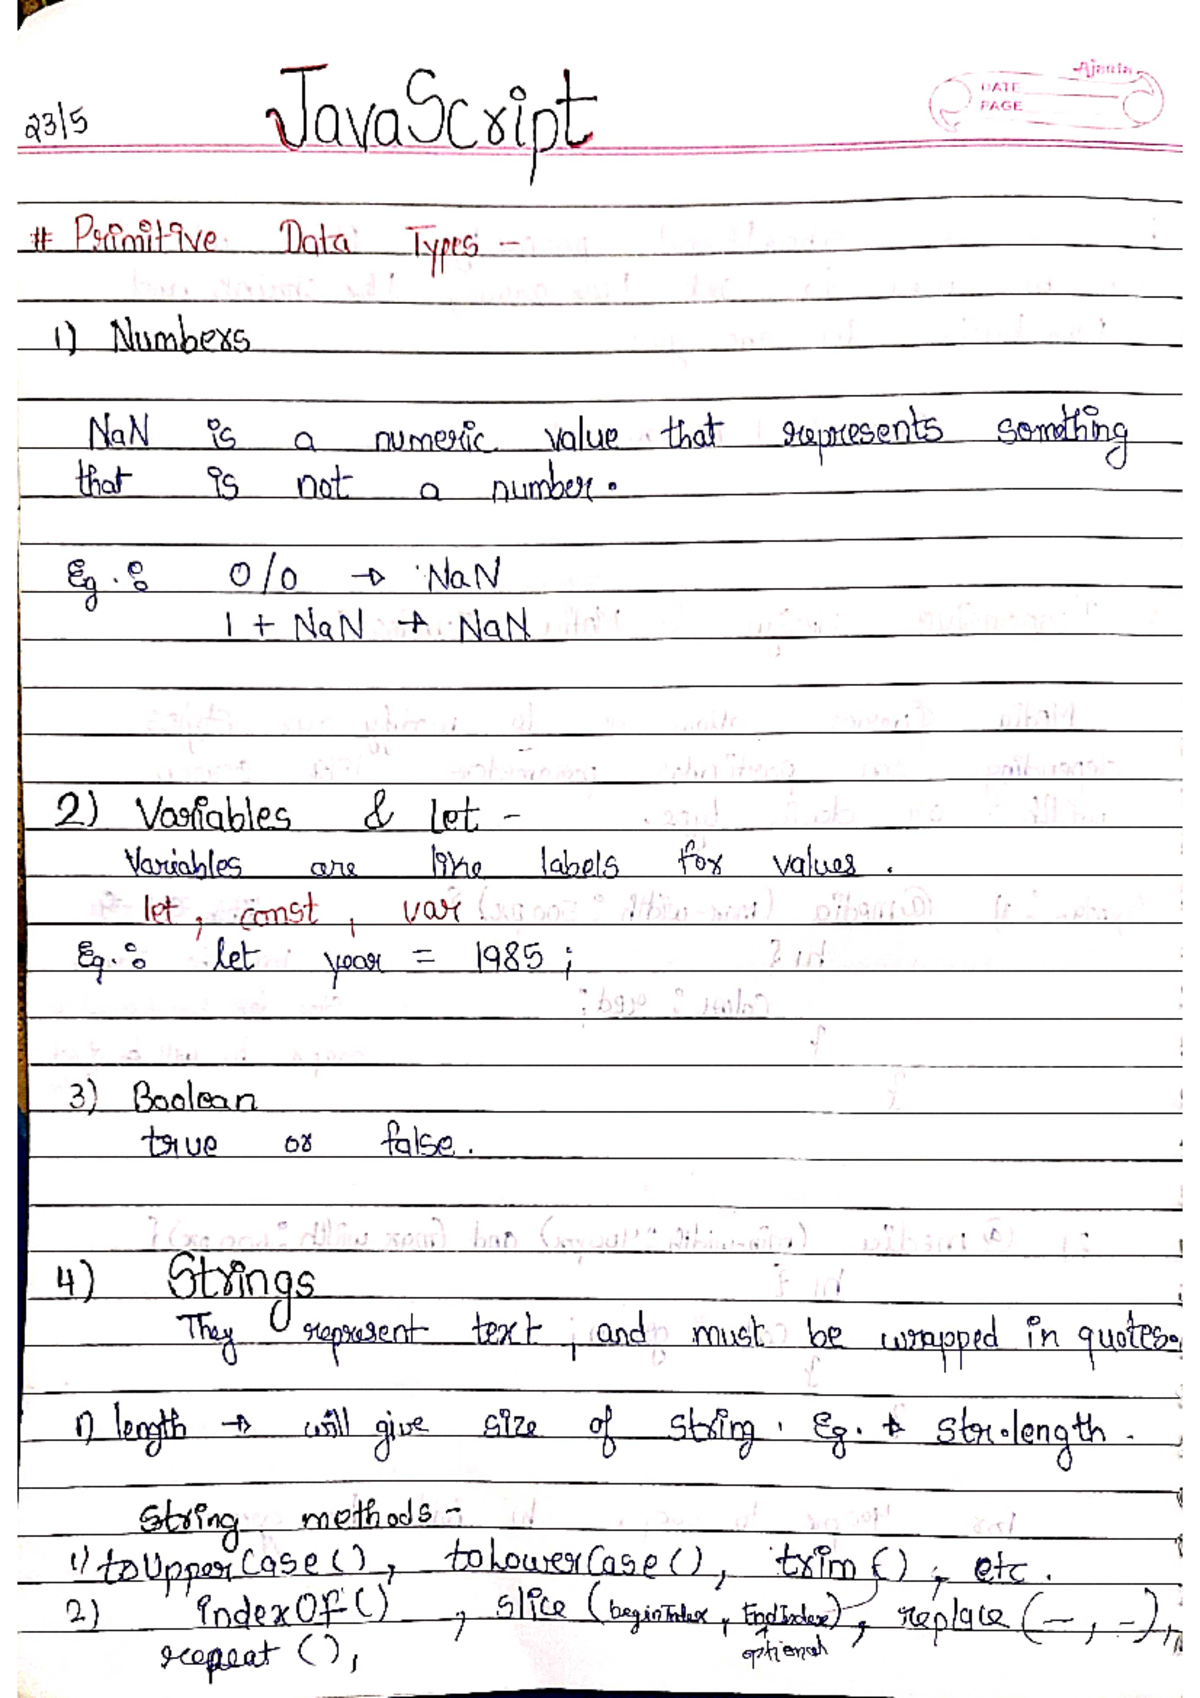 23/5
JavaScript
Ajanta
DATE
PAGE
# Primitive Data Types -
1) Numbers
NaN is a numeric value that represents something
that is not a number.
Eg.: 0/0 → NaN
1 + NaN → NaN
2) Variables & let -
Variables are like labels for values.
let, const, var
Eg.: let year = 1985;
3) Boolean
true or false.
4) Strings
They represent text, and must be wrapped in quotes.
1) length → will give size of string. Eg. → str.length.
String methods -
1) toUpperCase(), toLowerCase(), trim(), etc.
2) indexOf(), slice(beginIndex, EndIndex), replace(—, -),
optional
repeat(),